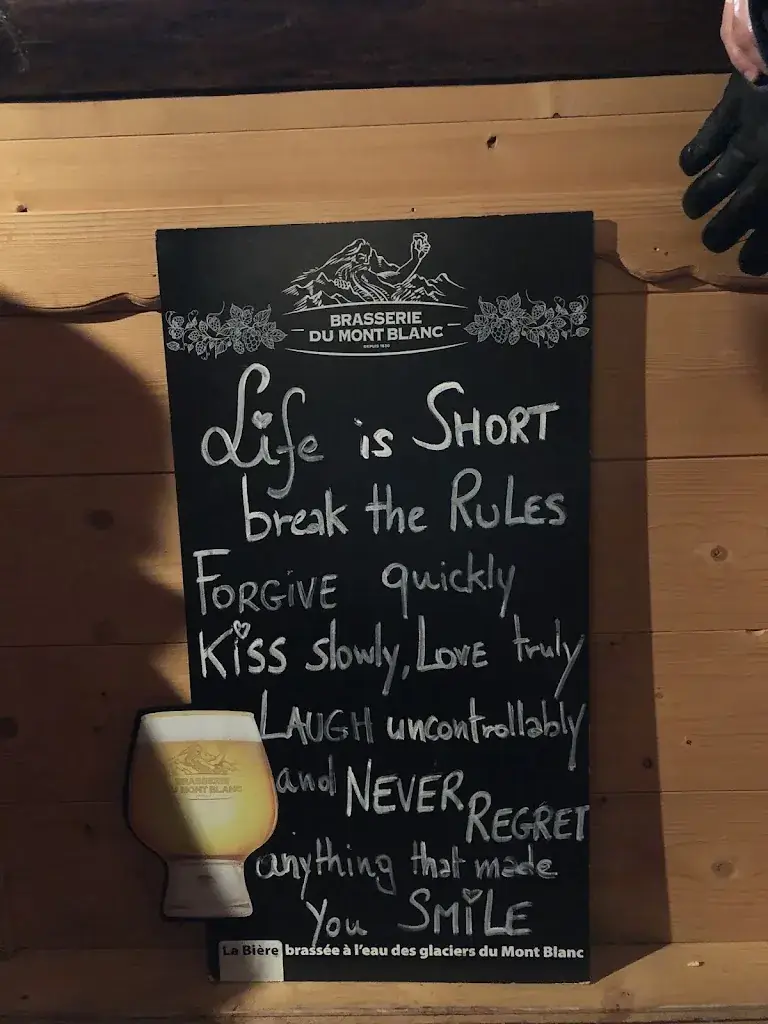 BRASSERIE
DU MONT BLANC
Life is SHORT
break the RULES
FORGIVE quickly
KiSS slowly, LOVE truly
LAUGH uncontrollably
and NEVER REGRET
anything that made
you SMiLE
BRASSERIE
DU MONT BLANC
La Bière brassée à l'eau des glaciers du Mont Blanc